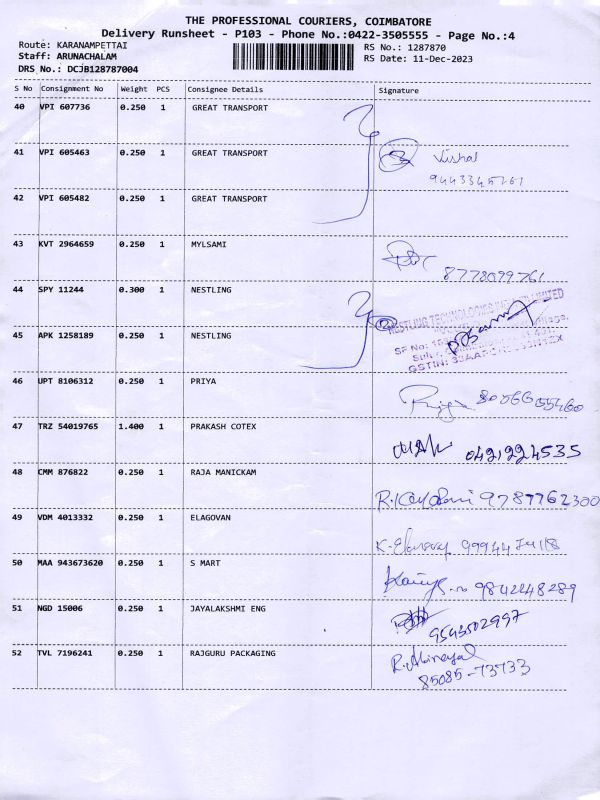 THE PROFESSIONAL COURIERS, COIMBATORE
Delivery Runsheet - P103 - Phone No.:0422-3505555 - Page No.:4
Route: KARANAMPETTAI RS No.: 1287870
Staff: ARUNACHALAM RS Date: 11-Dec-2023
DRS No.: DCJB128787004
S No Consignment No Weight PCS Consignee Details Signature
40 VPI 607736 0.250 1 GREAT TRANSPORT
41 VPI 605463 0.250 1 GREAT TRANSPORT Vishal
9443345761
42 VPI 605482 0.250 1 GREAT TRANSPORT
43 KVT 2964659 0.250 1 MYLSAMI
8778099761
44 SPY 11244 0.300 1 NESTLING
NESTLING TECHNOLOGIES LIMITED
45 APK 1258189 0.250 1 NESTLING
SF No:
GSTIN:
46 UPT 8106312 0.250 1 PRIYA Priya
47 TRZ 54019765 1.400 1 PRAKASH COTEX 0421224535
48 CMM 876822 0.250 1 RAJA MANICKAM
9787762300
49 VDM 4013332 0.250 1 ELAGOVAN
K. 99944
50 MAA 943673620 0.250 1 S MART
9842248289
51 NGD 15006 0.250 1 JAYALAKSHMI ENG
9543502997
52 TVL 7196241 0.250 1 RAJGURU PACKAGING R. Abinayal
85085-73733